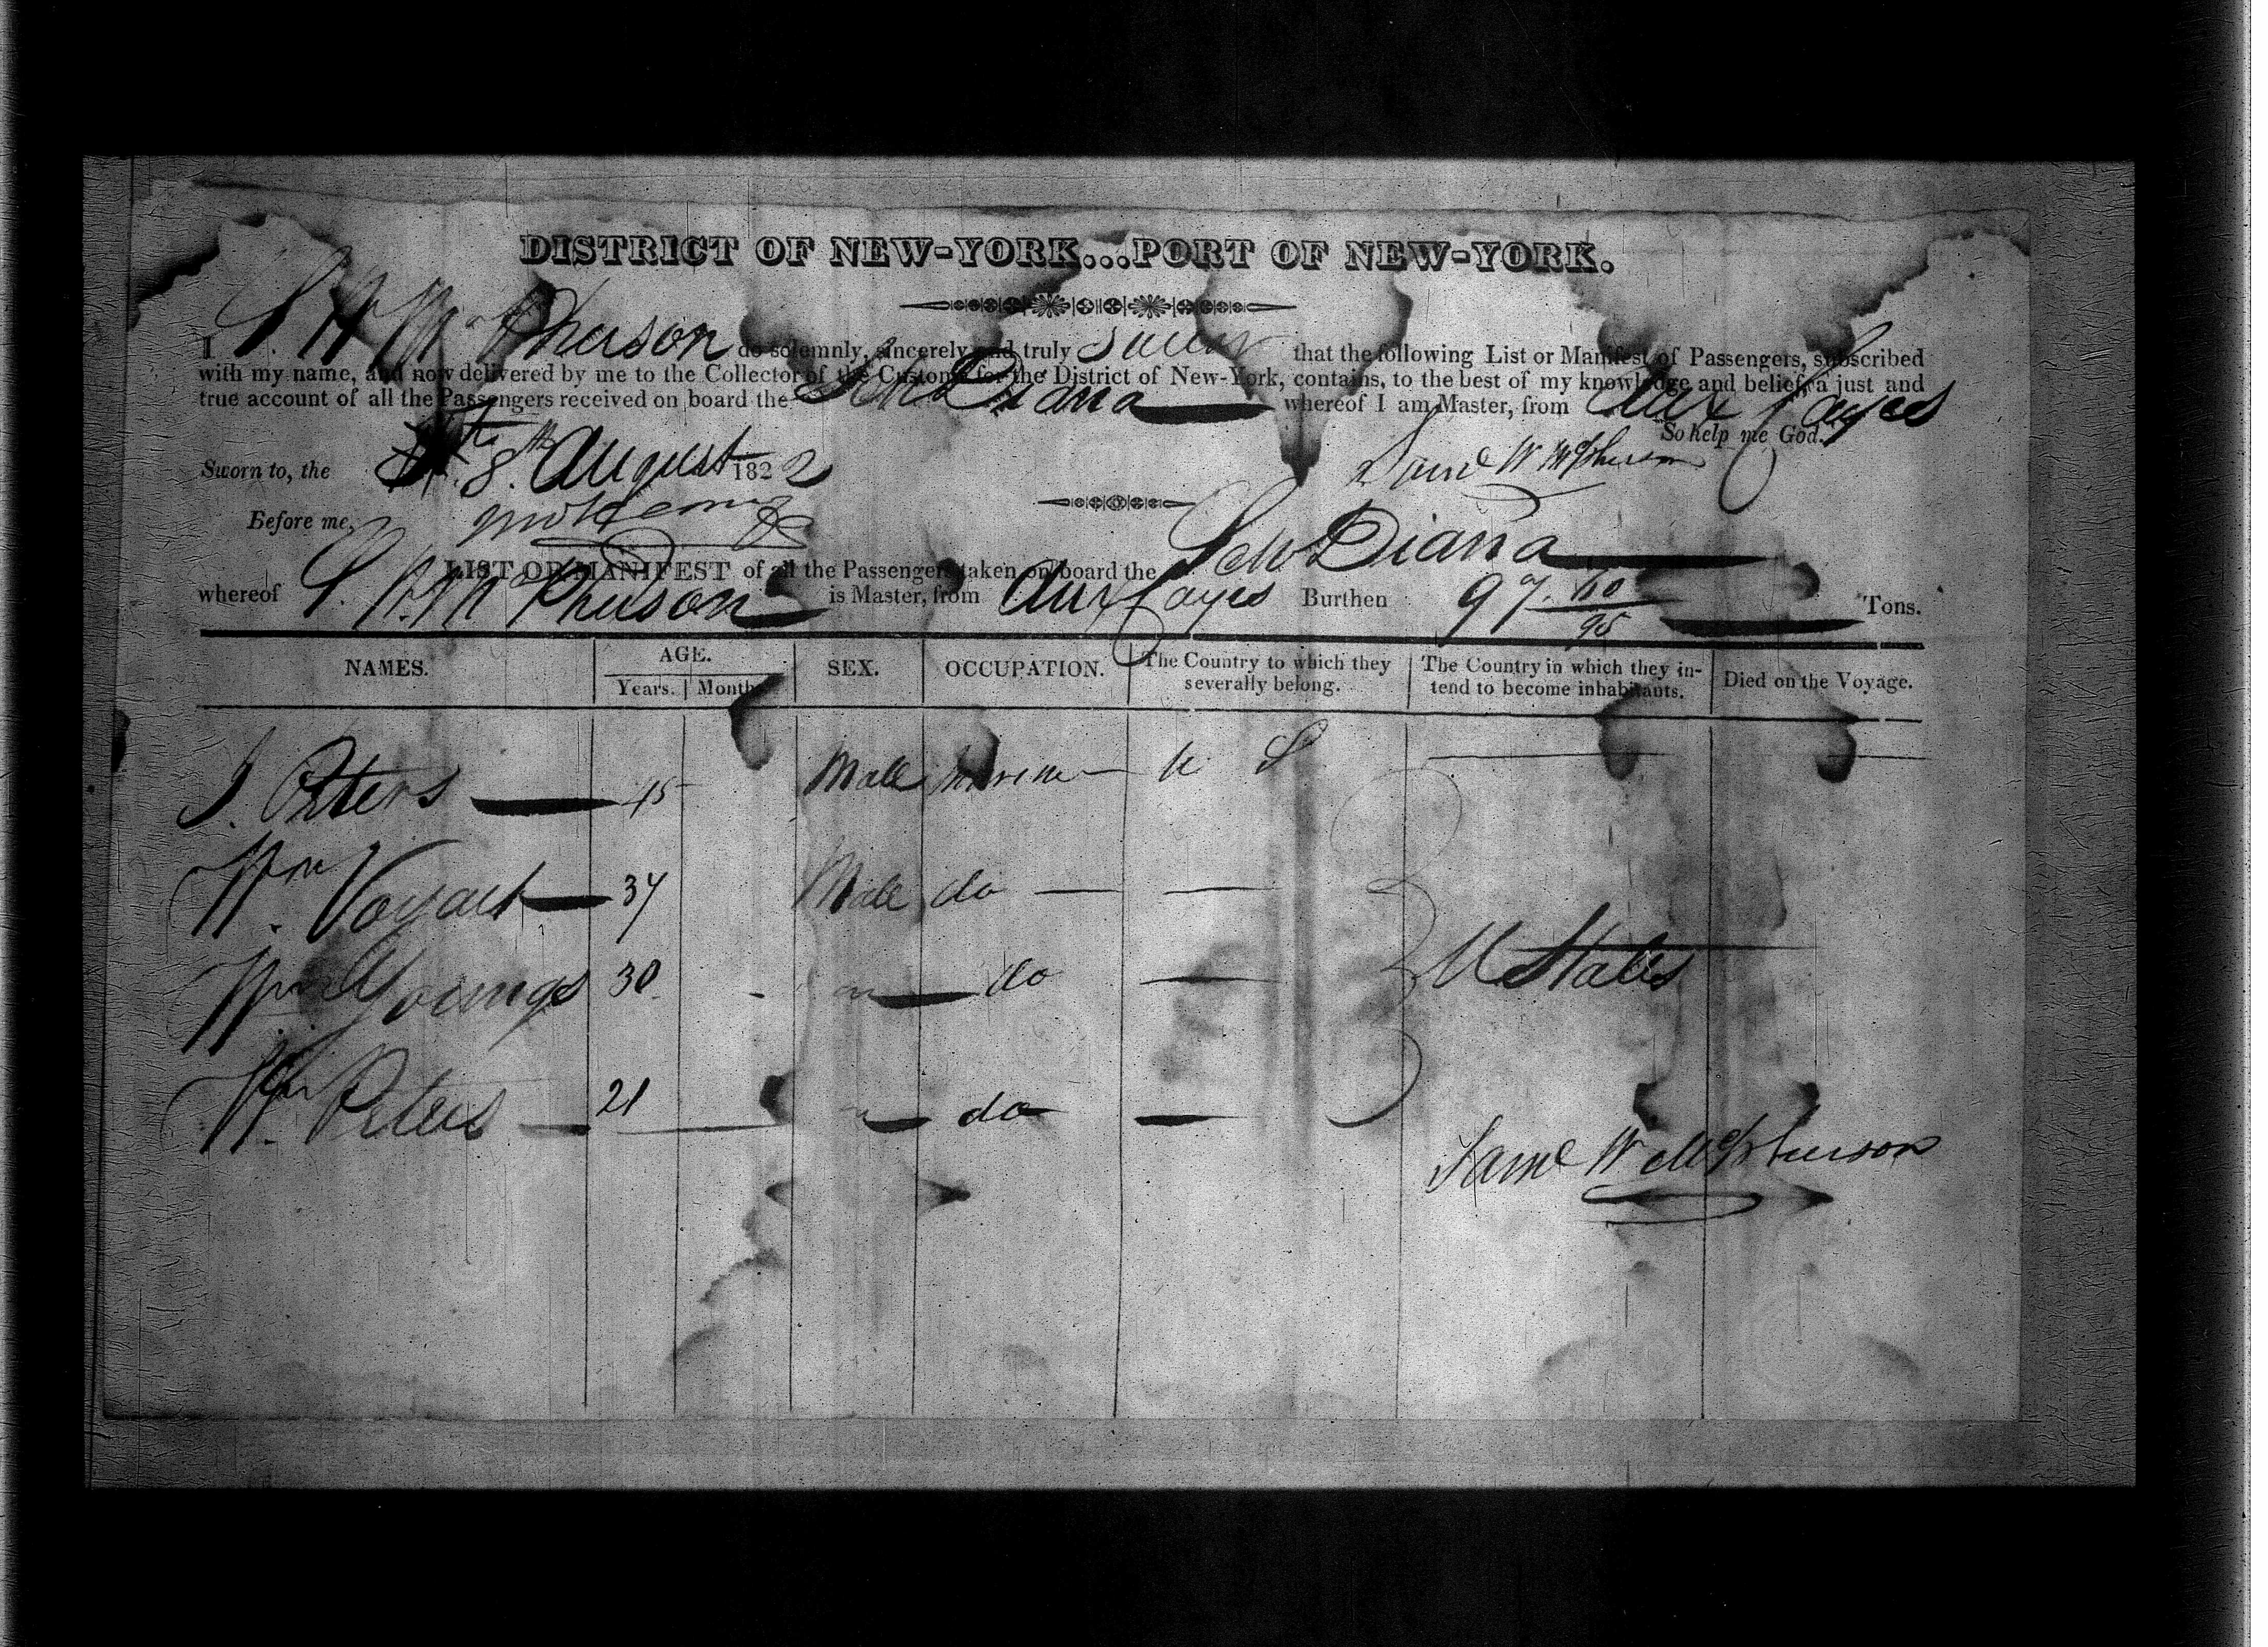 DISTRICT OF NEW-YORK...PORT OF NEW-YORK.
I S. W McPherson do solemnly, sincerely and truly swear that the following List or Manifest of Passengers, subscribed
with my name, and now delivered by me to the Collector of the Customs for the District of New-York, contains, to the best of my knowledge and belief, a just and
true account of all the Passengers received on board the Sch Diana whereof I am Master, from Aux Cayes
So help me God.
Sworn to, the 8th August 1822 Saml W McPherson
Before me,
LIST OR MANIFEST of all the Passengers taken on board the Sch Diana
whereof S. W. McPherson is Master, from Aux Cayes Burthen 97 60/95 Tons.
NAMES. AGE. SEX. OCCUPATION. The Country to which they severally belong. The Country in which they intend to become inhabitants. Died on the Voyage.
Years. Months
J. Peters 45 Male U S
Wm 37 Male do
Wm Youngs 30 do U States
Wm Peters 21 do
Saml W McPherson